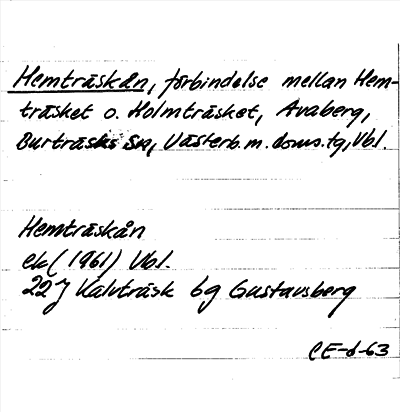 Hemträskån, förbindelse mellan Hem-
träsket o. Holmträsket, Avaberg,
Burträsks sn, Västerb.m.doms.tg, Vbl.
Hemträskån
ek (1961) Vbl.
22J Kalvträsk 6g Gustavsberg
CE-d-63